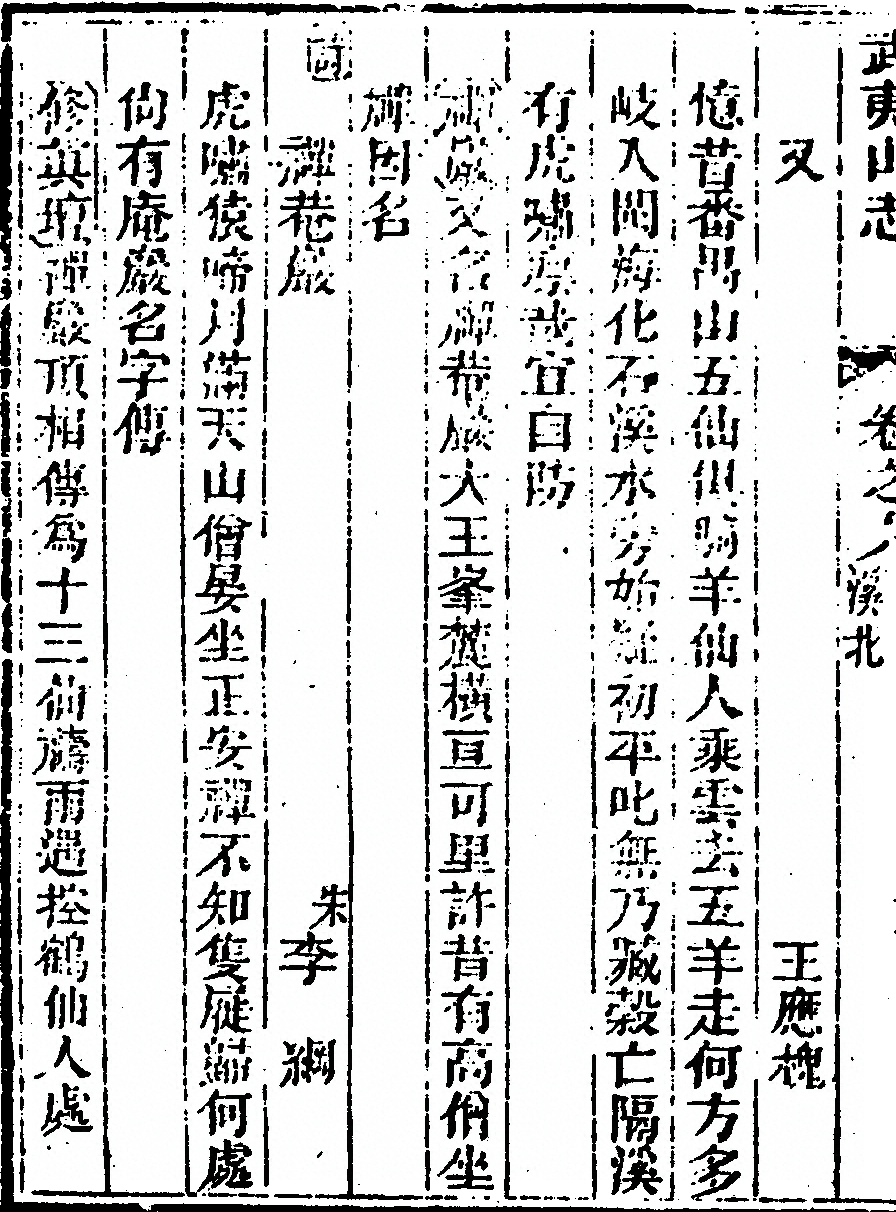 武夷山志 卷之八 溪北
又 王應槐
憶昔番禺山五仙俱騎羊仙人乘雲去五羊走何方多
岐入閩海化石溪水旁始疑初平叱無乃臧榖亡隔溪
有虎嘯原哉宜自防
禪巖又名禪菴巖大王峯麓橫亘可里許昔有高僧坐
禪因名
詩 禪菴巖 宋李 綱
虎嘯猿啼月滿天山僧晏坐正安禪不知隻履歸何處
尙有庵巖名字傳
修真壇禪巖頂相傳爲十三仙禱雨遇控鶴仙人處